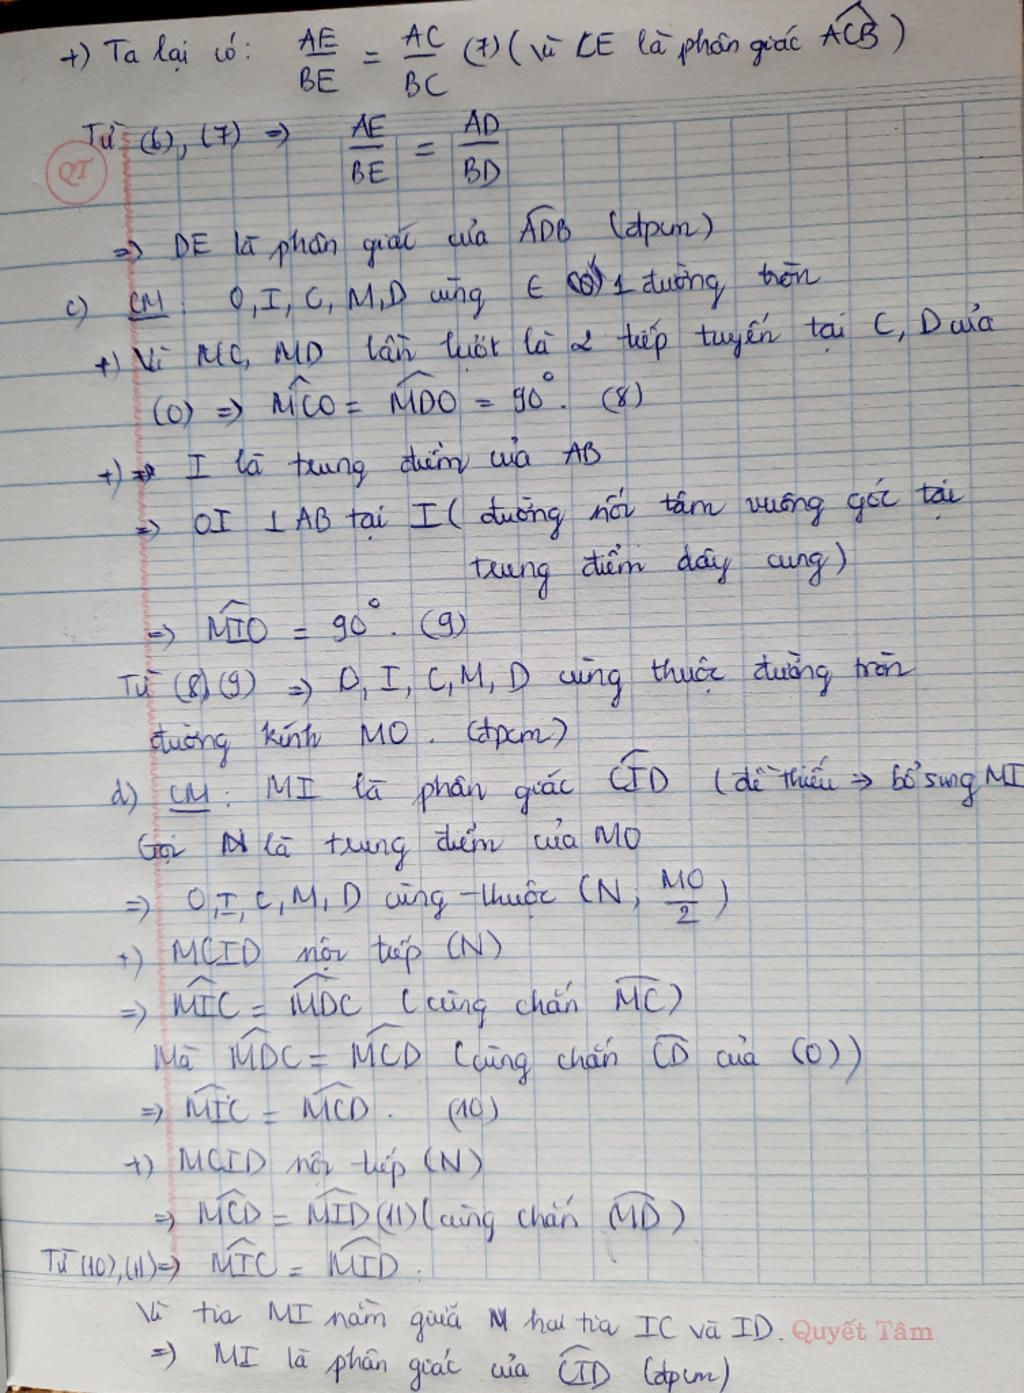 +) Ta lại có: AE/BE = AC/BC (7) (vì CE là phân giác ACB)
Từ (6), (7) => AE/BE = AD/BD
QT
=> DE là phân giác của ADB (đpcm)
c) CM: O, I, C, M, D cùng ∈ 1 đường tròn
+) Vì MC, MD lần lượt là 2 tiếp tuyến tại C, D của
(O) => MCO = MDO = 90°. (8)
+) I là trung điểm của AB
=> OI ⊥ AB tại I ( đường nối tâm vuông góc tại
trung điểm dây cung)
=> MIO = 90°. (9)
Từ (8)(9) => O, I, C, M, D cùng thuộc đường tròn
đường kính MO. (đpcm)
d) CM: MI là phân giác CID (đề thiếu => bổ sung MI
Gọi N là trung điểm của MO
=> O, I, C, M, D cùng thuộc (N; MO/2)
+) MCID nội tiếp (N)
=> MIC = MDC (cùng chắn MC)
Mà MDC = MCD (cùng chắn CD của (O))
=> MIC = MCD. (10)
+) MCID nội tiếp (N)
=> MCD = MID (11) (cùng chắn MD)
Từ (10), (11) => MIC = MID.
Vì tia MI nằm giữa hai tia IC và ID. Quyết Tâm
=> MI là phân giác của CID (đpcm)